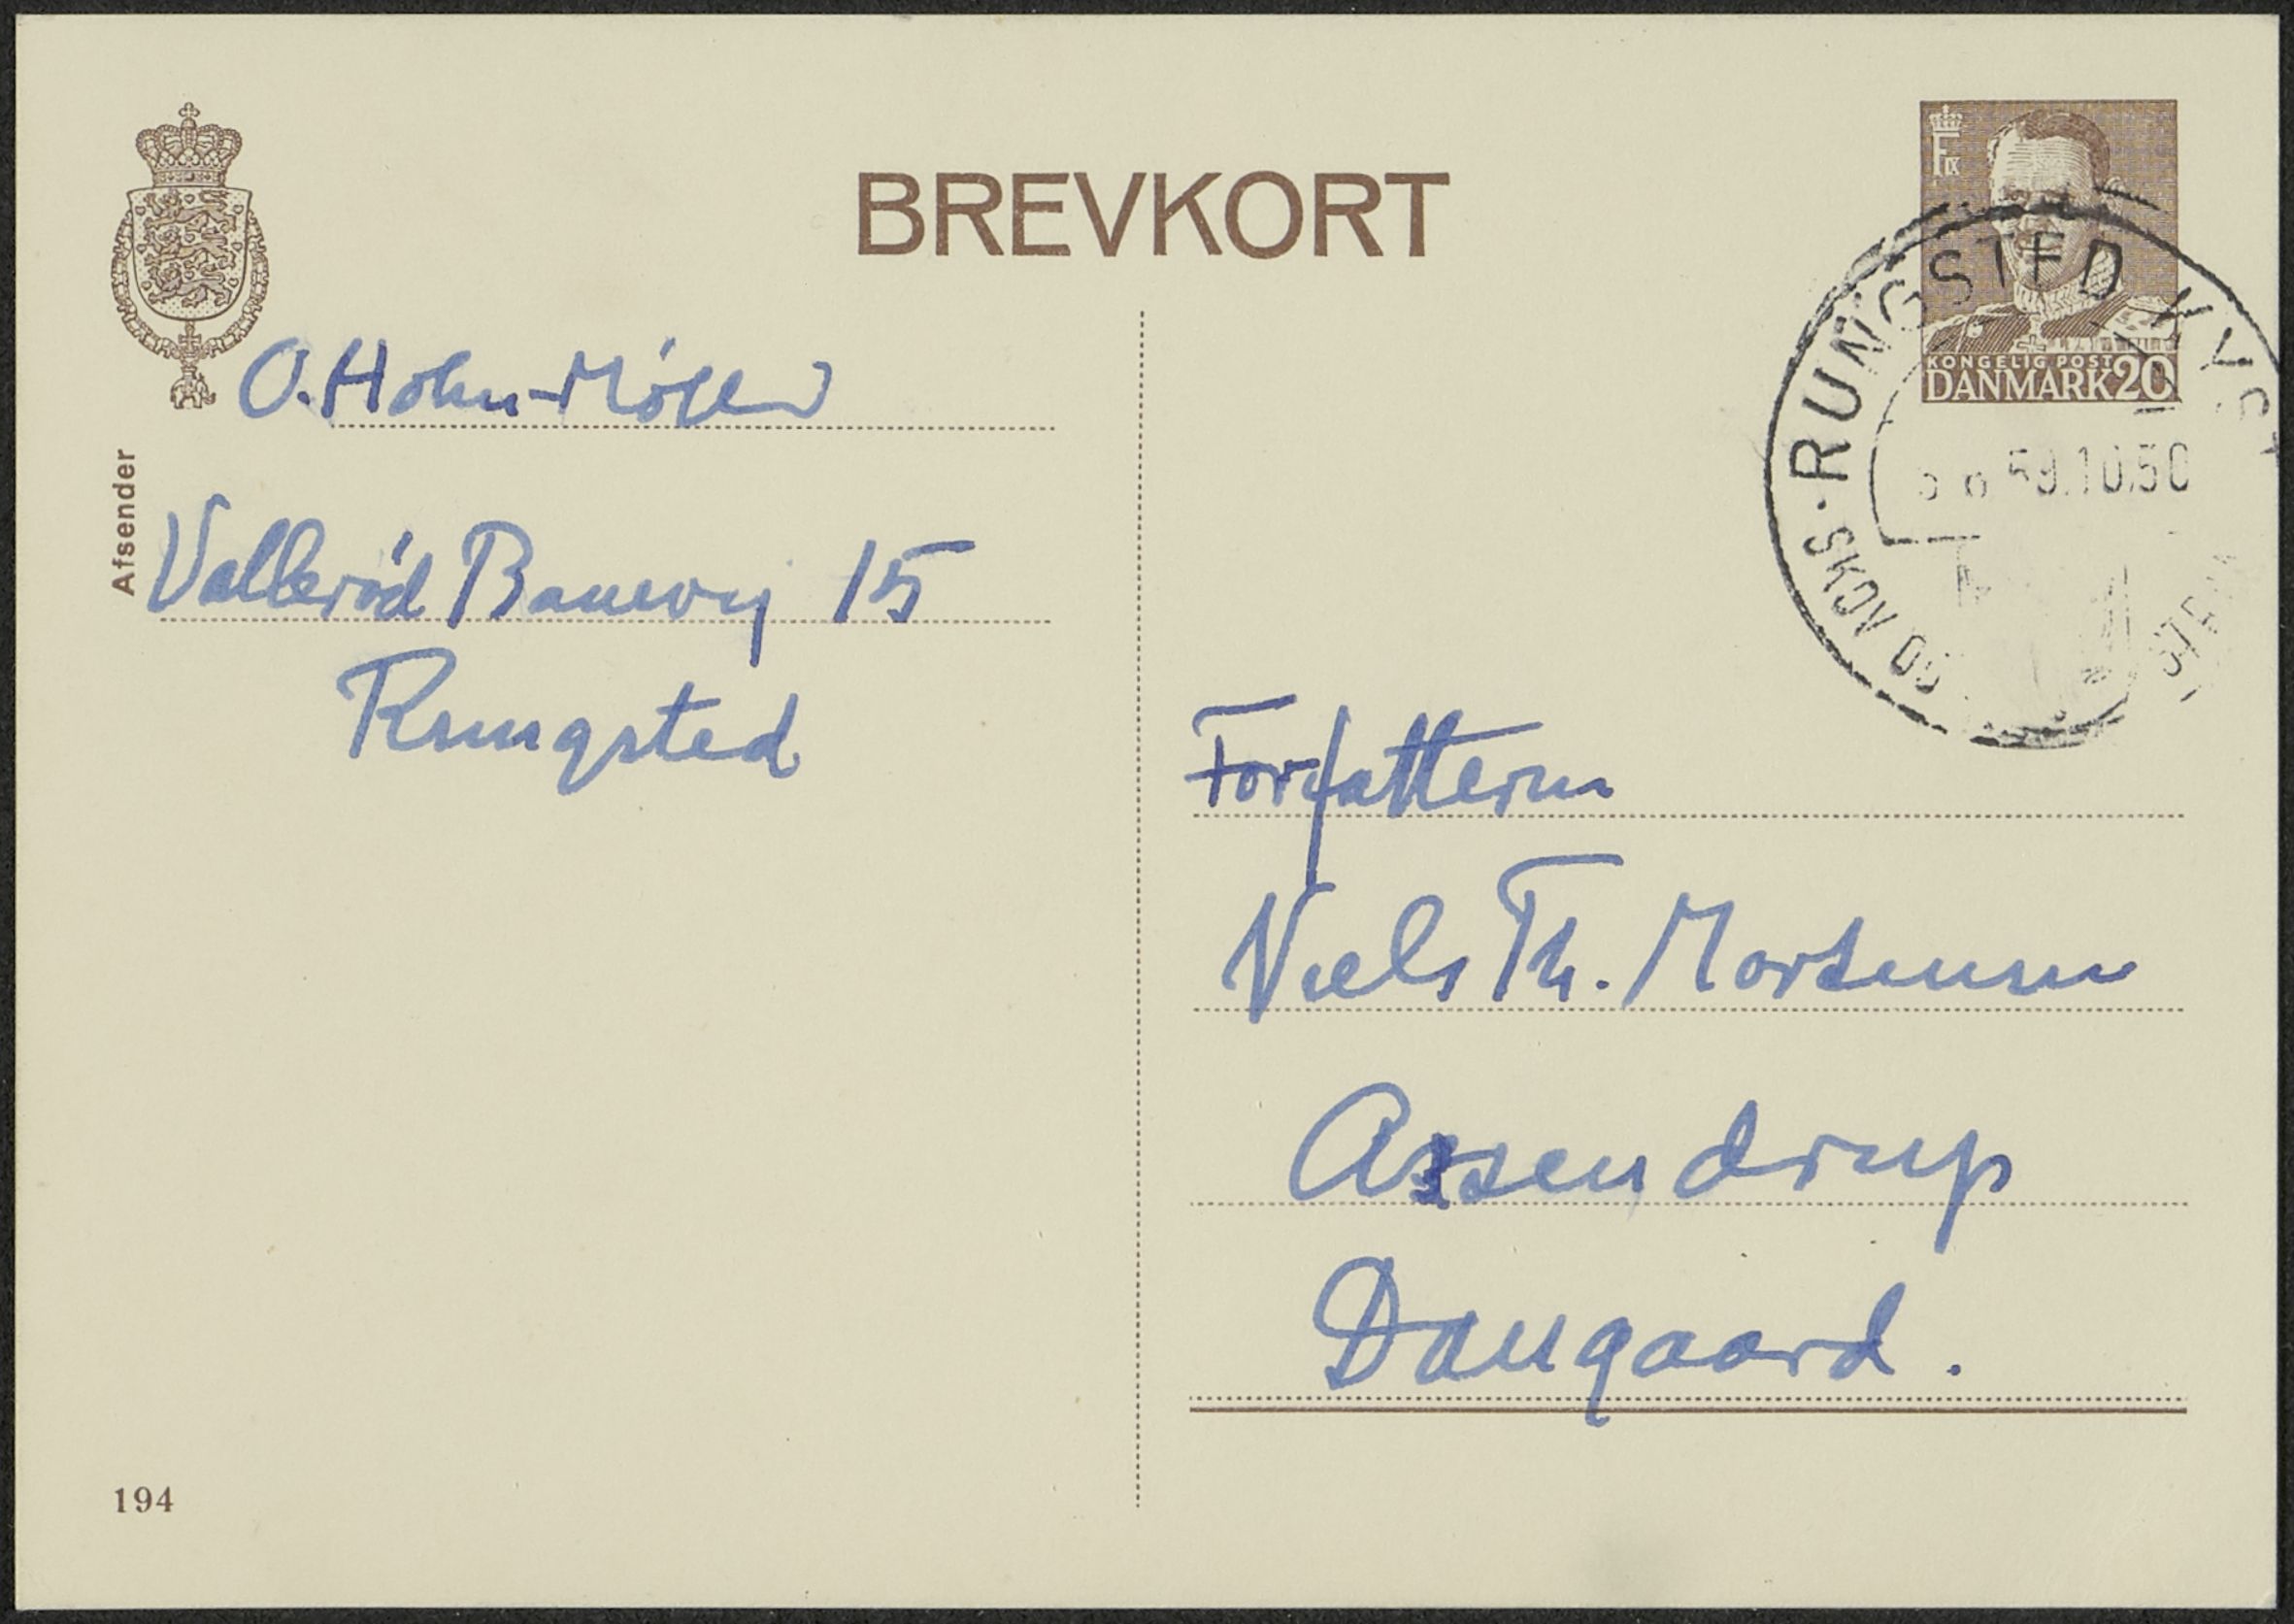 BREVKORT
F IX
KONGELIG POST
DANMARK 20
RUNGSTED KYST
59.10.50
Afsender
O. Holm-Møller
Vallerød Banevej 15
Rungsted
Forfatteren
Niels Th. Mortensen
Assendrup
Daugaard.
194